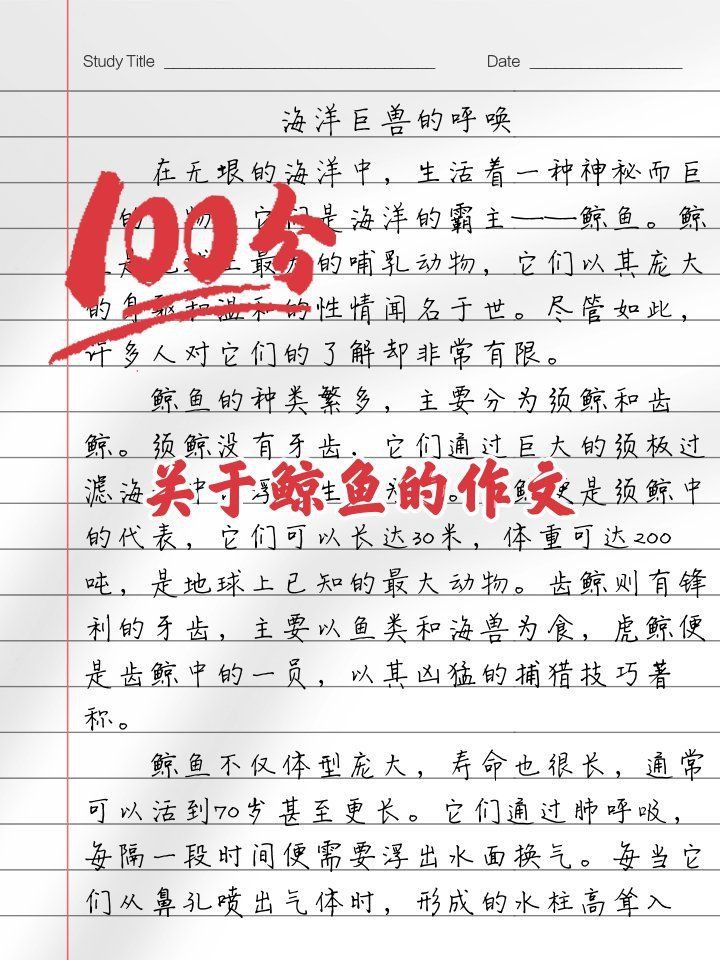 Study Title
Date
海洋巨兽的呼唤
100分
在无垠的海洋中，生活着一种神秘而巨
的 物 它们是海洋的霸主——鲸鱼。鲸
是 上最 的哺乳动物，它们以其庞大
的 温和的性情闻名于世。尽管如此，
许多人对它们的了解却非常有限。
鲸鱼的种类繁多，主要分为须鲸和齿
鲸。须鲸没有牙齿，它们通过巨大的须板过
关于鲸鱼的作文
滤海 中 浮 生 。 鲸便是须鲸中
的代表，它们可以长达30米，体重可达200
吨，是地球上已知的最大动物。齿鲸则有锋
利的牙齿，主要以鱼类和海兽为食，虎鲸便
是齿鲸中的一员，以其凶猛的捕猎技巧著
称。
鲸鱼不仅体型庞大，寿命也很长，通常
可以活到70岁甚至更长。它们通过肺呼吸，
每隔一段时间便需要浮出水面换气。每当它
们从鼻孔喷出气体时，形成的水柱高耸入